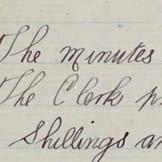 The minutes
The Clerk p
Shillings an